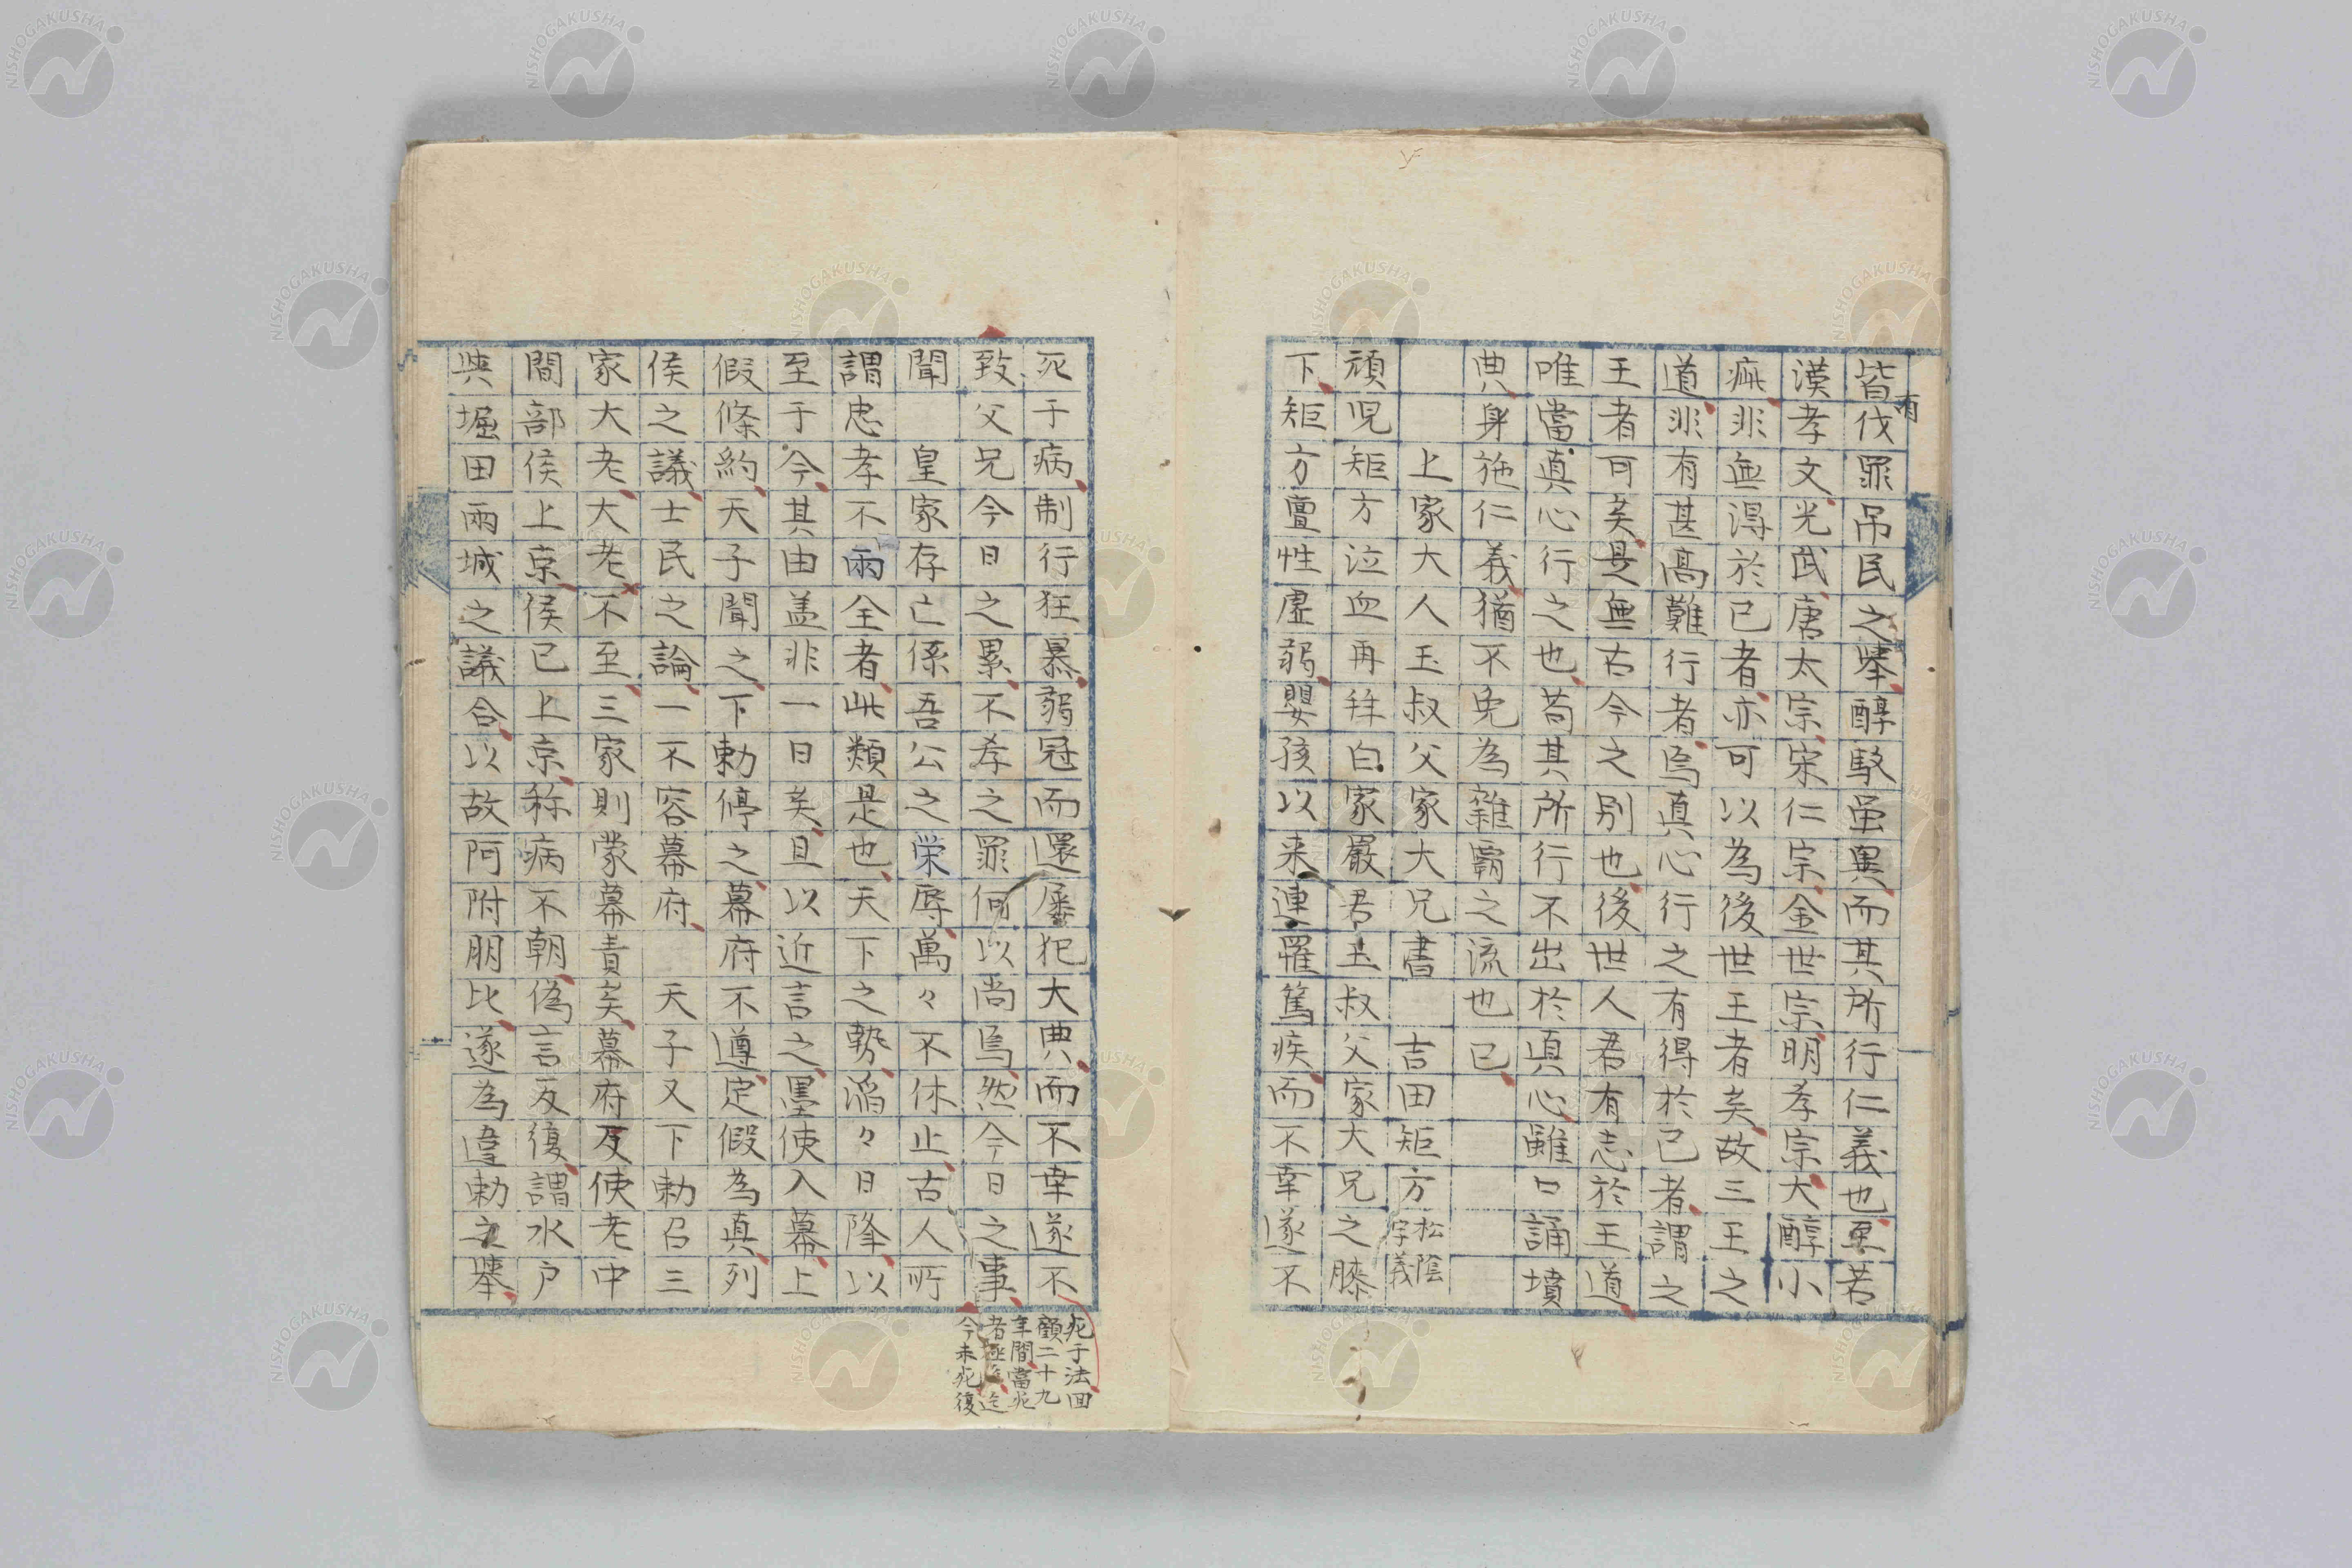 皆伐罪吊民之擧醇駁虽異而其所行仁義也至若
有
漢孝文光武唐太宗宋仁宗金世宗明孝宗大醇小
疵非無得於已者亦可以為後世王者矣故三王之
道非有甚高難行者烏真心行之有得於已者謂之
王者可矣是無古今之別也後世人君有志於王道
唯當真心行之也苟其所行不出於真心雖口誦墳
典身施仁義猶不免為雜霸之流也已
上家大人玉叔父家大兄書 吉田矩方松陰字義
頑児矩方泣血再拝白家嚴君玉叔父家大兄之膝
下矩方亶性虚弱嬰孩以来連罹篤疾而不幸遂不
死于病制行狂暴弱冠而還屡犯大典而不幸遂不
死于法回
顧二十九
年間當死
者極多迄
今未死復
致父兄今日之累不孝之罪何以尚焉然今日之事
聞 皇家存亡係吾公之栄辱萬々不休止古人所
謂忠孝不兩全者此類是也天下之勢滔々日降以
至于今其由盖非一日矣且以近言之墨使入幕上
假條約天子聞之下勅停之幕府不遵定假為真列
侯之議士民之論一不容幕府 天子又下勅召三
家大老大老不至三家則蒙幕責矣幕府反使老中
間部侯上京侯已上京称病不朝偽言反復謂水戸
與堀田兩城之議合以故阿附朋比遂為違勅之擧
NISHOGAKUSHA